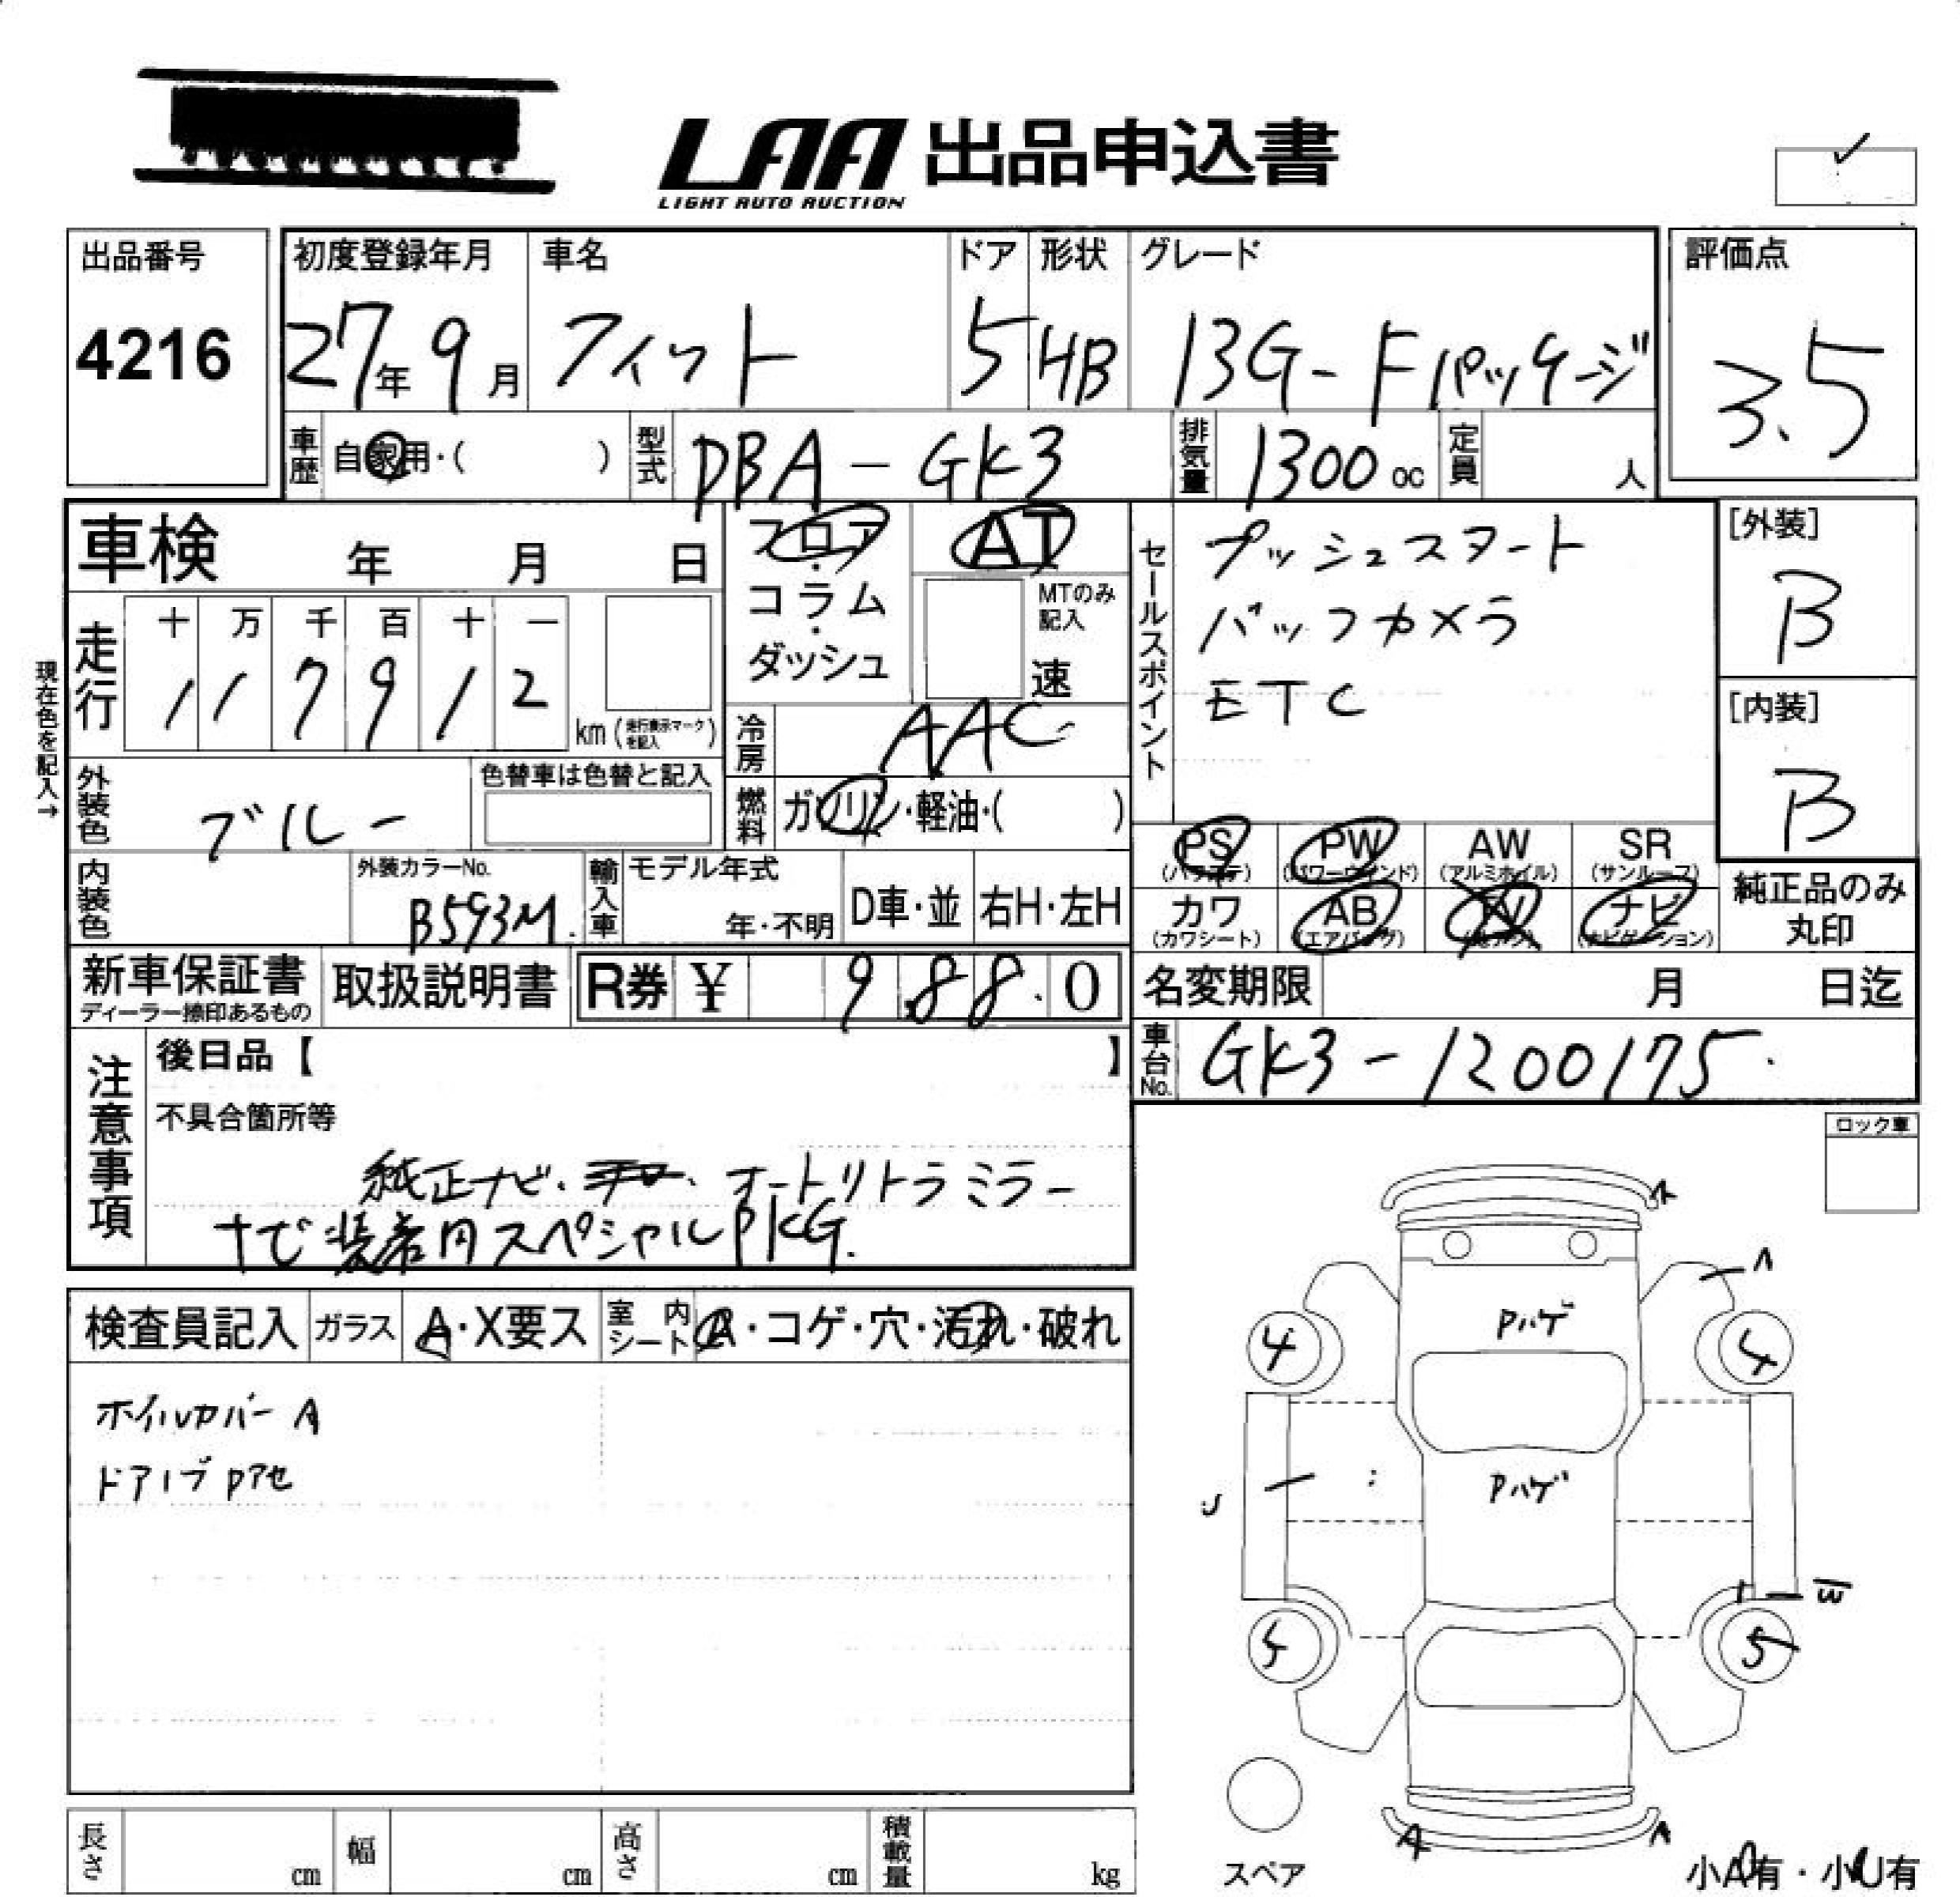 LAA 出品申込書
LIGHT AUTO AUCTION
出品番号 初度登録年月 車名 ドア 形状 グレード 評価点
4216 27年 9月 フィット 5 HB 13G-Fパッケージ 3.5
車歴 自家用・( ) 型式 DBA-GK3 排気量 1300 cc 定員 人
車検 年 月 日 フロア・コラム・ダッシュ AT
MTのみ記入 速
セールスポイント プッシュスタート
バックカメラ
ETC
[外装] B
[内装] B
現在色を記入→
走行 十 万 千 百 十 一
1 1 7 9 1 2 km (走行表示マークを記入)
冷房 AAC
外装色 ブルー 色替車は色替と記入
燃料 ガソリン・軽油・( )
PS (パワステ) PW (パワーウインド) AW (アルミホイル) SR (サンルーフ)
カワ (カワシート) AB (エアバッグ) TV ナビ (ナビゲーション)
純正品のみ丸印
内装色 外装カラーNo. B593M 輸入車 モデル年式 年・不明 D車・並 右H・左H
新車保証書 ディーラー捺印あるもの 取扱説明書 R券 ¥ 9.880
名変期限 月 日迄
車台No. GK3-1200175
注意事項 後日品【 】
不具合箇所等
純正ナビ、オートリトラミラー
ナビ装着用スペシャルPKG.
ロック車
検査員記入 ガラス A・X要ス 室内シート A・コゲ・穴・汚れ・破れ
ホイルカバー A
ドアノブPアセ
A
A
Pハゲ
4 4
Pハゲ
U
W
5 5
A A
スペア
小A有・小U有
長さ cm 幅 cm 高さ cm 積載量 kg